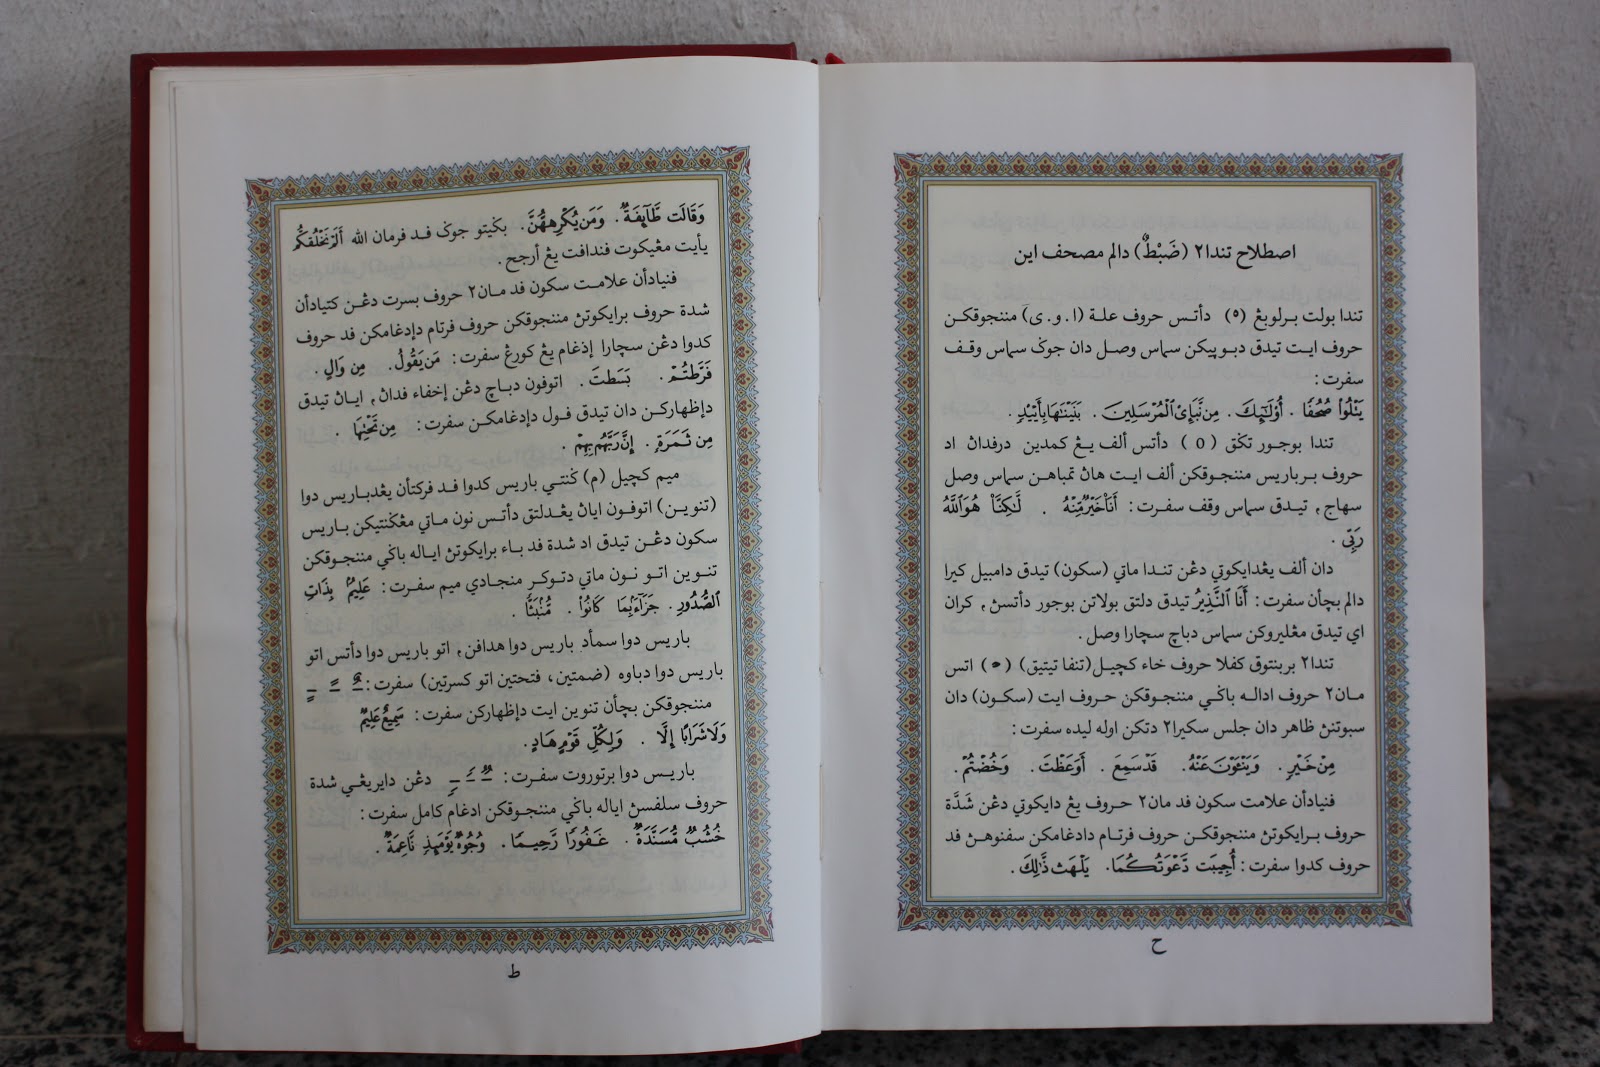 اصطلاح تندا٢ (ضَبْطٌ) دالم مصحف اين
تندا بولت برلوبڠ (٥) دأتس حروف علة (ا . و . ى) مننجوقكن
حروف ايت تيدق دبوڽيكن سماس وصل دان جوݢ سماس وقف
سفرت :
يَتْلُواْ صُحُفًا . أُوْلَٰٓئِكَ . مِن نَّبَإِيْ ٱلْمُرْسَلِينَ . بَنَيْنَٰهَا بِأَيْيْدٍ .
تندا بوجور تݢق (٥) دأتس ألف يڠ كمدين درفداڽ اد
حروف برباريس مننجوقكن ألف ايت هاڽ تمباهن سماس وصل
سهاج , تيدق سماس وقف سفرت : أَنَا۠ خَيْرٌ مِّنْهُ . لَّٰكِنَّا۠ هُوَ ٱللَّهُ
رَبِّي .
دان ألف يڠدايكوتي دڠن تندا ماتي (سكون) تيدق دامبيل كيرا
دالم بچأن سفرت : أَنَا ٱلنَّذِيرُ تيدق دلتق بولاتن بوجور دأتسڽ , كران
اي تيدق مڠليروكن سماس دباچ سچارا وصل .
تندا٢ بربنتوق كفلا حروف خاء كچيل (تنفا تيتيق) (ۡ) اتس
مان٢ حروف اداله باݢي مننجوقكن حروف ايت (سكون) دان
سبوتنڽ ظاهر دان جلس سكيرا٢ دتكن اوله ليده سفرت :
مِنْ خَيْرٍ . وَيَنْـَٔوْنَ عَنْهُ . قَدْ سَمِعَ . أَوَعَظْتَ . وَخُضْتُمْ .
فنيادأن علامت سكون فد مان٢ حروف يڠ دايكوتي دڠن شَدَّة
حروف برايكوتڽ مننجوقكن حروف فرتام دادغامكن سفنوهڽ فد
حروف كدوا سفرت : أُجِيبَت دَّعْوَتُكُمَا . يَلْهَث ذَّٰلِكَ .
ح
وَقَالَت طَّآئِفَةٌ . وَمَن يُكْرِههُّنَّ . بݢيتو جوݢ فد فرمان الله أَلَمْ نَخْلُقكُّم
يأيت مڠيكوت فندافت يڠ أرجح .
فنيادأن علامت سكون فد مان٢ حروف بسرت دڠن كتيادأن
شدة حروف برايكوتڽ مننجوقكن حروف فرتام دإدغامكن فد حروف
كدوا دڠن سچارا إدغام يڠ كورڠ سفرت : مَن يَقُولُ . مِن وَالٍ .
فَرَّطتُمْ . بَسَطتَ . اتوفون دباچ دڠن إخفاء فداڽ , اياڽ تيدق
دإظهاركن دان تيدق فول دإدغامكن سفرت : مِن تَحْتِهَا .
مِن ثَمَرَةٍ . إِنَّ رَبَّهُم بِهِمْ .
ميم كچيل (م) ݢنتي باريس كدوا فد فركتأن يڠدباريس دوا
(تنوين) اتوفون اياڽ يڠدلتق دأتس نون ماتي مڠݢنتيكن باريس
سكون دڠن تيدق اد شدة فد باء برايكوتڽ اياله باݢي مننجوقكن
تنوين اتو نون ماتي دتوكر منجادي ميم سفرت : عَلِيمٌۢ بِذَاتِ
ٱلصُّدُورِ . جَزَآءًۢ بِمَا كَانُواْ . مُّنۢبَثًّا .
باريس دوا سمأد باريس دوا هدافن , اتو باريس دوا دأتس اتو
باريس دوا دباوه (ضمتين ، فتحتين اتو كسرتين) سفرت : ـٌ ـً ـٍ
مننجوقكن بچأن تنوين ايت دإظهاركن سفرت : سَمِيعٌ عَلِيمٌ
وَلَا شَرَابًا إِلَّا . وَلِكُلِّ قَوْمٍ هَادٍ .
باريس دوا برتوروت سفرت : ـٌ ـً ـٍ دڠن دايريڠي شدة
حروف سلفسڽ اياله باݢي مننجوقكن ادغام كامل سفرت :
خُشُبٌ مُّسَنَّدَةٌ . غَفُورًا رَّحِيمًا . وُجُوهٌ يَوْمَئِذٍ نَّاعِمَةٌ .
ط